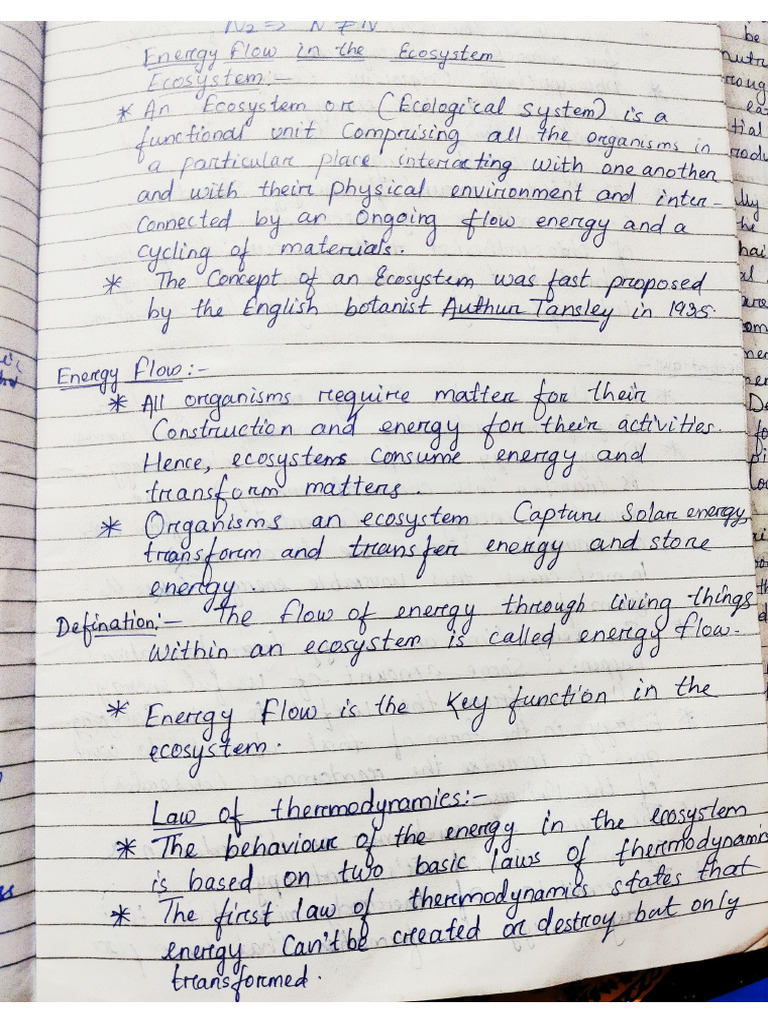 N₂ ⇒ N ≠ N
Energy flow in the Ecosystem
Ecosystem:-
* An Ecosystem or (Ecological system) is a
functional unit Comprising all the organisms in
a particular place interacting with one another
and with their physical environment and inter-
Connected by an Ongoing flow energy and a
cycling of materials.
* The Concept of an Ecosystem was fast proposed
by the English botanist Authur Tansley in 1935.
Energy Flow:-
* All organisms require matter for their
Construction and energy for their activities.
Hence, ecosystems Consume energy and
transform matters.
* Organisms an ecosystem Capture Solar energy,
transform and transfer energy and store
energy.
Defination:- The flow of energy through living things
within an ecosystem is called energy flow.
* Energy Flow is the Key function in the
ecosystem.
Law of thermodynamies:-
* The behaviour of the energy in the ecosystem
is based on two basic laws of thermodynamis
* The first law of thermodynamics states that
energy Can't be created or destroy but only
transformed.
be